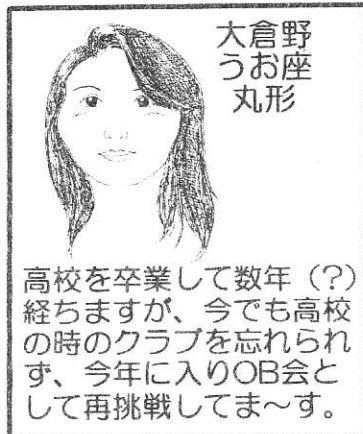 大倉野
うお座
丸形
高校を卒業して数年（？）
経ちますが、今でも高校
の時のクラブを忘れられ
ず、今年に入りOB会と
して再挑戦してま〜す。